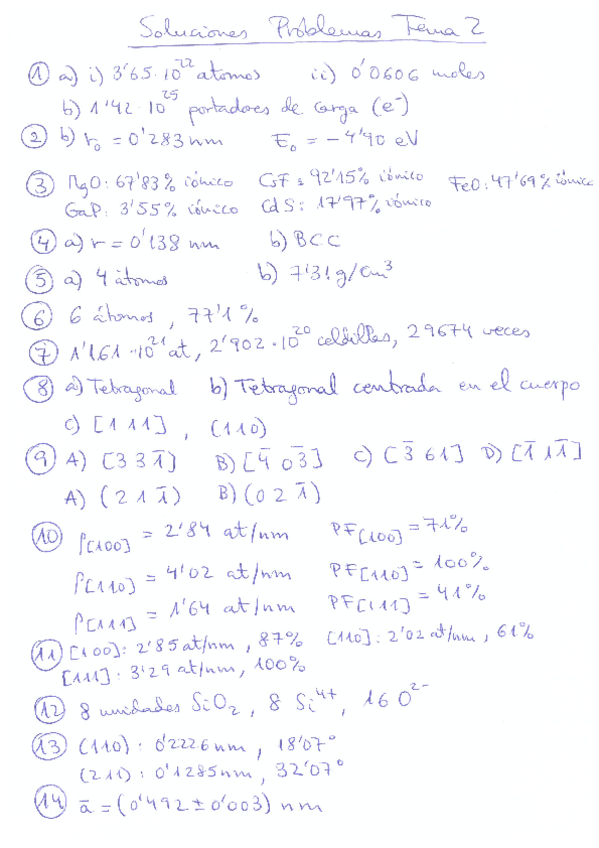 Soluciones Problemas Tema 2
① a) i) 3'65·10²² atomos ii) 0'0606 moles
b) 1'42·10²⁵ portadores de carga (e⁻)
② b) r₀ = 0'283 nm E₀ = -4'90 eV
③ MgO: 67'83% iónico CsF: 92'15% iónico FeO: 47'69% iónico
GaP: 3'55% iónico CdS: 17'97% iónico
④ a) r = 0'138 nm b) BCC
⑤ a) 4 átomos b) 7'31 g/cm³
⑥ 6 átomos, 77'1%
⑦ 1'161·10²¹ at, 2'902·10²⁰ celdillas, 29674 veces
⑧ a) Tetragonal b) Tetragonal centrada en el cuerpo
c) [1 1 1], (110)
⑨ A) [3 3 1̄] B) [4̄ 0 3̄] C) [3̄ 6 1] D) [1̄ 1 1̄]
A) (2 1 1̄) B) (0 2 1̄)
⑩ ρ[100] = 2'84 at/nm PF[100] = 71%
ρ[110] = 4'02 at/nm PF[110] = 100%
ρ[111] = 1'64 at/nm PF[111] = 41%
⑪ [100]: 2'85 at/nm, 87% [110]: 2'02 at/nm, 61%
[111]: 3'29 at/nm, 100%
⑫ 8 unidades SiO₂, 8 Si⁴⁺, 16 O²⁻
⑬ (110): 0'2226 nm, 18'07°
(211): 0'1285 nm, 32'07°
⑭ ā = (0'492 ± 0'003) nm